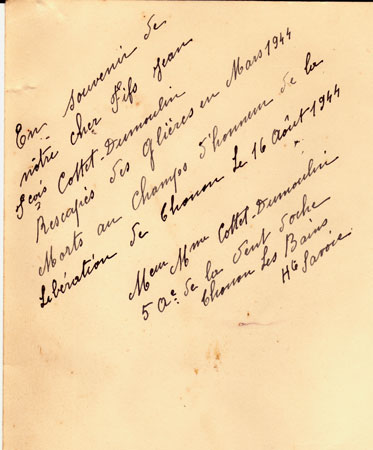 En souvenir de
nôtre cher Fils Jean
Fçois Cottet-Dumoulin
Rescapés des Glières en Mars 1944
Morts au Champs d'honneur de la
Libération de Thonon Le 16 Août 1944
Meur Mme Cottet-Dumoulin
5 Ae. de la dent d'oche
Thonon Les Bains
Hte Savoie.